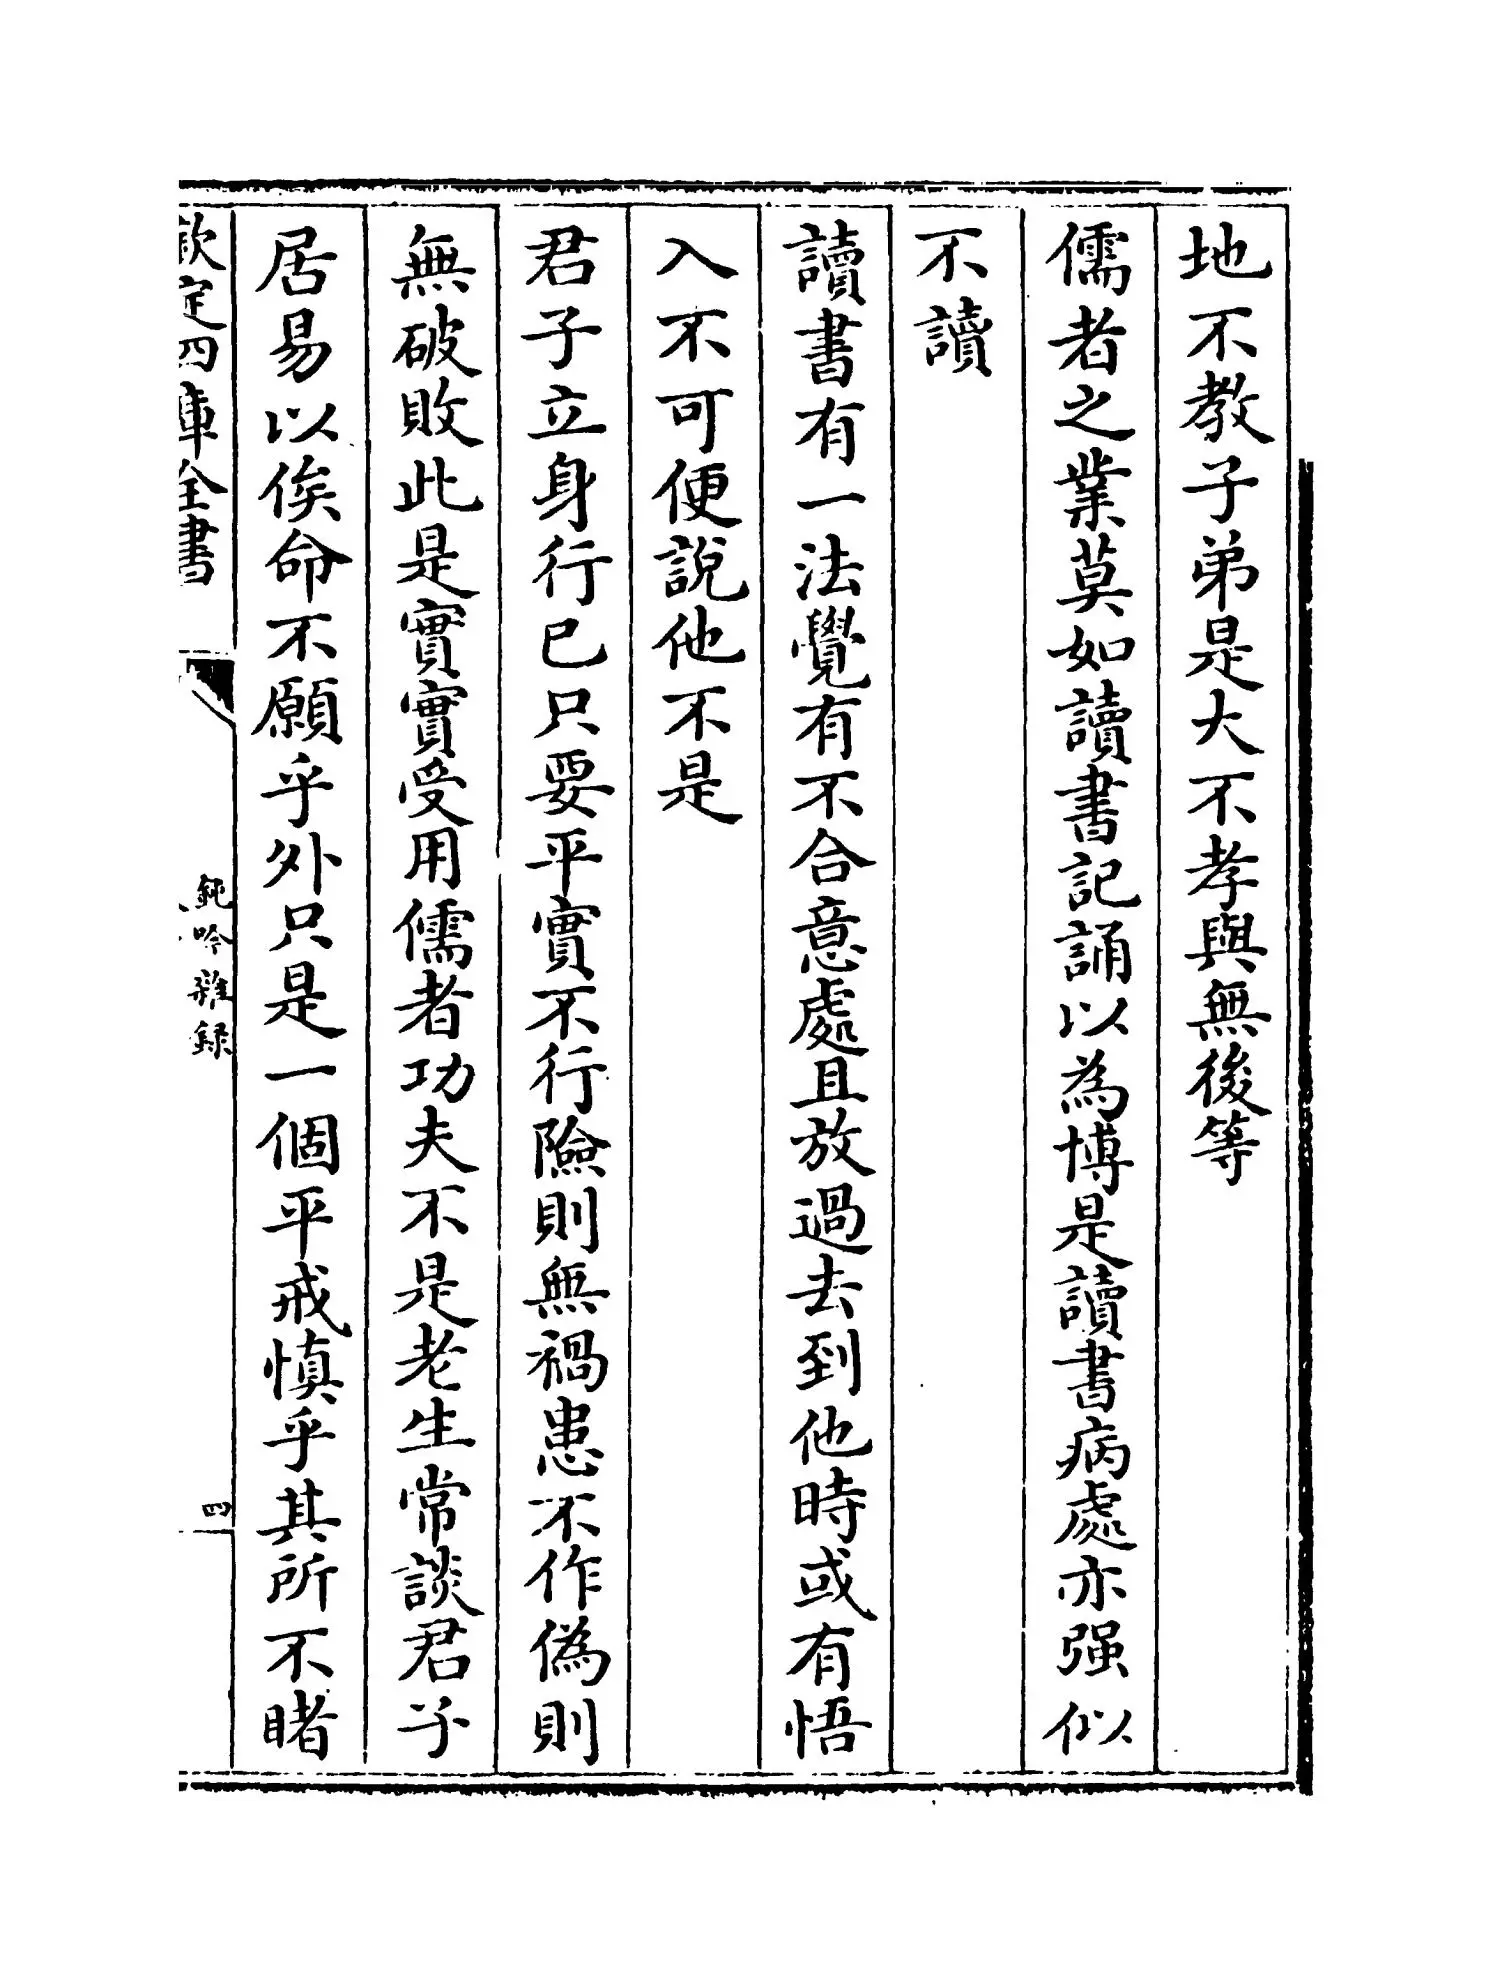 地不教子弟是大不孝與無後等
儒者之業莫如讀書記誦以為博是讀書病處亦强似
不讀
讀書有一法覺有不合意處且放過去到他時或有悟
入不可便說他不是
君子立身行已只要平實不行險則無禍患不作偽則
無破敗此是實實受用儒者功夫不是老生常談君子
居易以俟命不願乎外只是一個平戒慎乎其所不睹
欽定四庫全書
鈍吟雜録
四